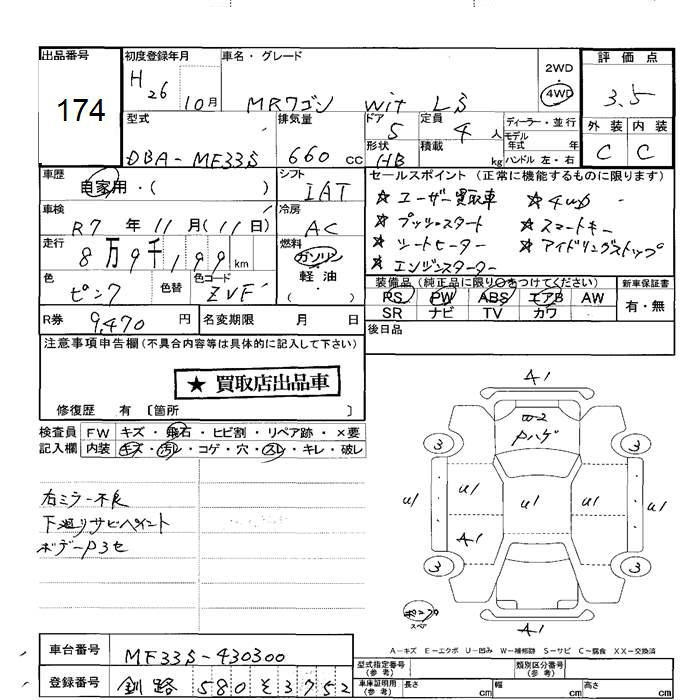 出品番号 初度登録年月 車名・グレード 評価点
174 H26 10月 MRワゴン wit LS 2WD 4WD 3.5
型式 排気量 ドア 定員 ディーラー・並行 外装 内装
DBA-MF33S 660cc 5 4人 モデル年式 年 C C
形状 積載 HB kg ハンドル 左・右
車歴 シフト セールスポイント(正常に機能するものに限ります)
自家用・( ) IAT ☆ユーザー買取車 ☆4WD
車検 冷房 ☆プッシュスタート ☆スマートキー
R7年11月(11日) AC ☆シートヒーター ☆アイドリングストップ
走行 燃料 ☆エンジンスターター
8万9千199km ガソリン 軽油 ( )
色 色替 色コード 装備品(純正品に限り○をつけてください) 新車保証書
ピンク ZVF PS PW ABS エアB AW 有・無
SR ナビ TV カワ
R券 9,470円 名変期限 月 日 後日品
注意事項申告欄(不具合内容等は具体的に記入して下さい)
★ 買取店出品車
修復歴 有 〔箇所 〕
検査員 FW キズ・飛石・ヒビ割・リペア跡・×要
記入欄 内装 キズ・汚レ・コゲ・穴・スレ・キレ・破レ
右ミラー不良
下廻りサビペイント
ボデーP3セ
A1
W-2
Pハゲ
3 3
U1 U1 U1 U1 U1
A1
3 3
スペア
A1
A-キズ E-エクボ U-凹み W-補修跡 S-サビ C-腐食 XX-交換済
車台番号 MF33S-430300
登録番号 釧路 580 そ 3752
型式指定番号(参考) 類別区分番号(参考)
車庫証明用(参考) 長さ cm 幅 cm 高さ cm